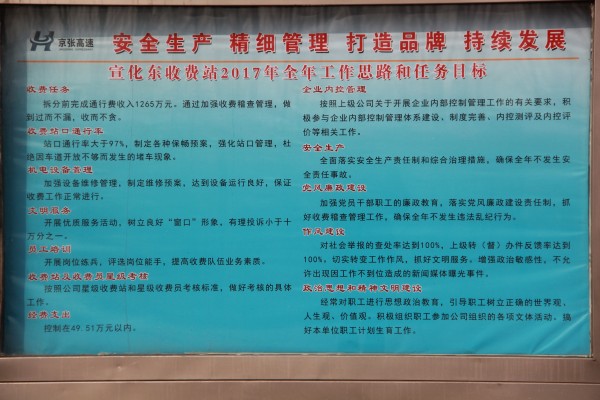 京张高速
安全生产 精细管理 打造品牌 持续发展
宣化东收费站2017年全年工作思路和任务目标
收费任务
拆分前完成通行费收入1265万元。通过加强收费稽查管理，做
到过而不漏，收而不贪。
收费站口通行率
站口通行率大于97%，制定各种保畅预案，强化站口管理，杜
绝因车道开放不够而发生的堵车现象。
机电设备管理
加强设备维修管理，制定维修预案，达到设备运行良好，保证
收费工作正常进行。
文明服务
开展优质服务活动，树立良好“窗口”形象，有理投诉小于十
万分之一。
员工培训
开展岗位练兵，评选岗位能手，提高收费队伍业务素质。
收费站及收费员星级考核
按照公司星级收费站和星级收费员考核标准，做好考核的具体
工作。
经费支出
控制在49.51万元以内。
企业内控管理
按照上级公司关于开展企业内部控制管理工作的有关要求，积
极参与企业内部控制管理体系建设、制度完善、内控测评及内控评
价等相关工作。
安全生产
全面落实安全生产责任制和综合治理措施，确保全年不发生安
全责任事故。
党风廉政建设
加强党员干部职工的廉政教育，落实党风廉政建设责任制，抓
好收费稽查管理工作，确保全年不发生违法乱纪行为。
作风建设
对社会举报的查处率达到100%，上级转（督）办件反馈率达到
100%，切实转变工作作风，抓好文明服务，增强政治敏感性，不允
许出现因工作不到位造成的新闻媒体曝光事件。
政治思想和精神文明建设
经常对职工进行思想政治教育，引导职工树立正确的世界观、
人生观、价值观。积极组织职工参加公司组织的各项文体活动。搞
好本单位职工计划生育工作。